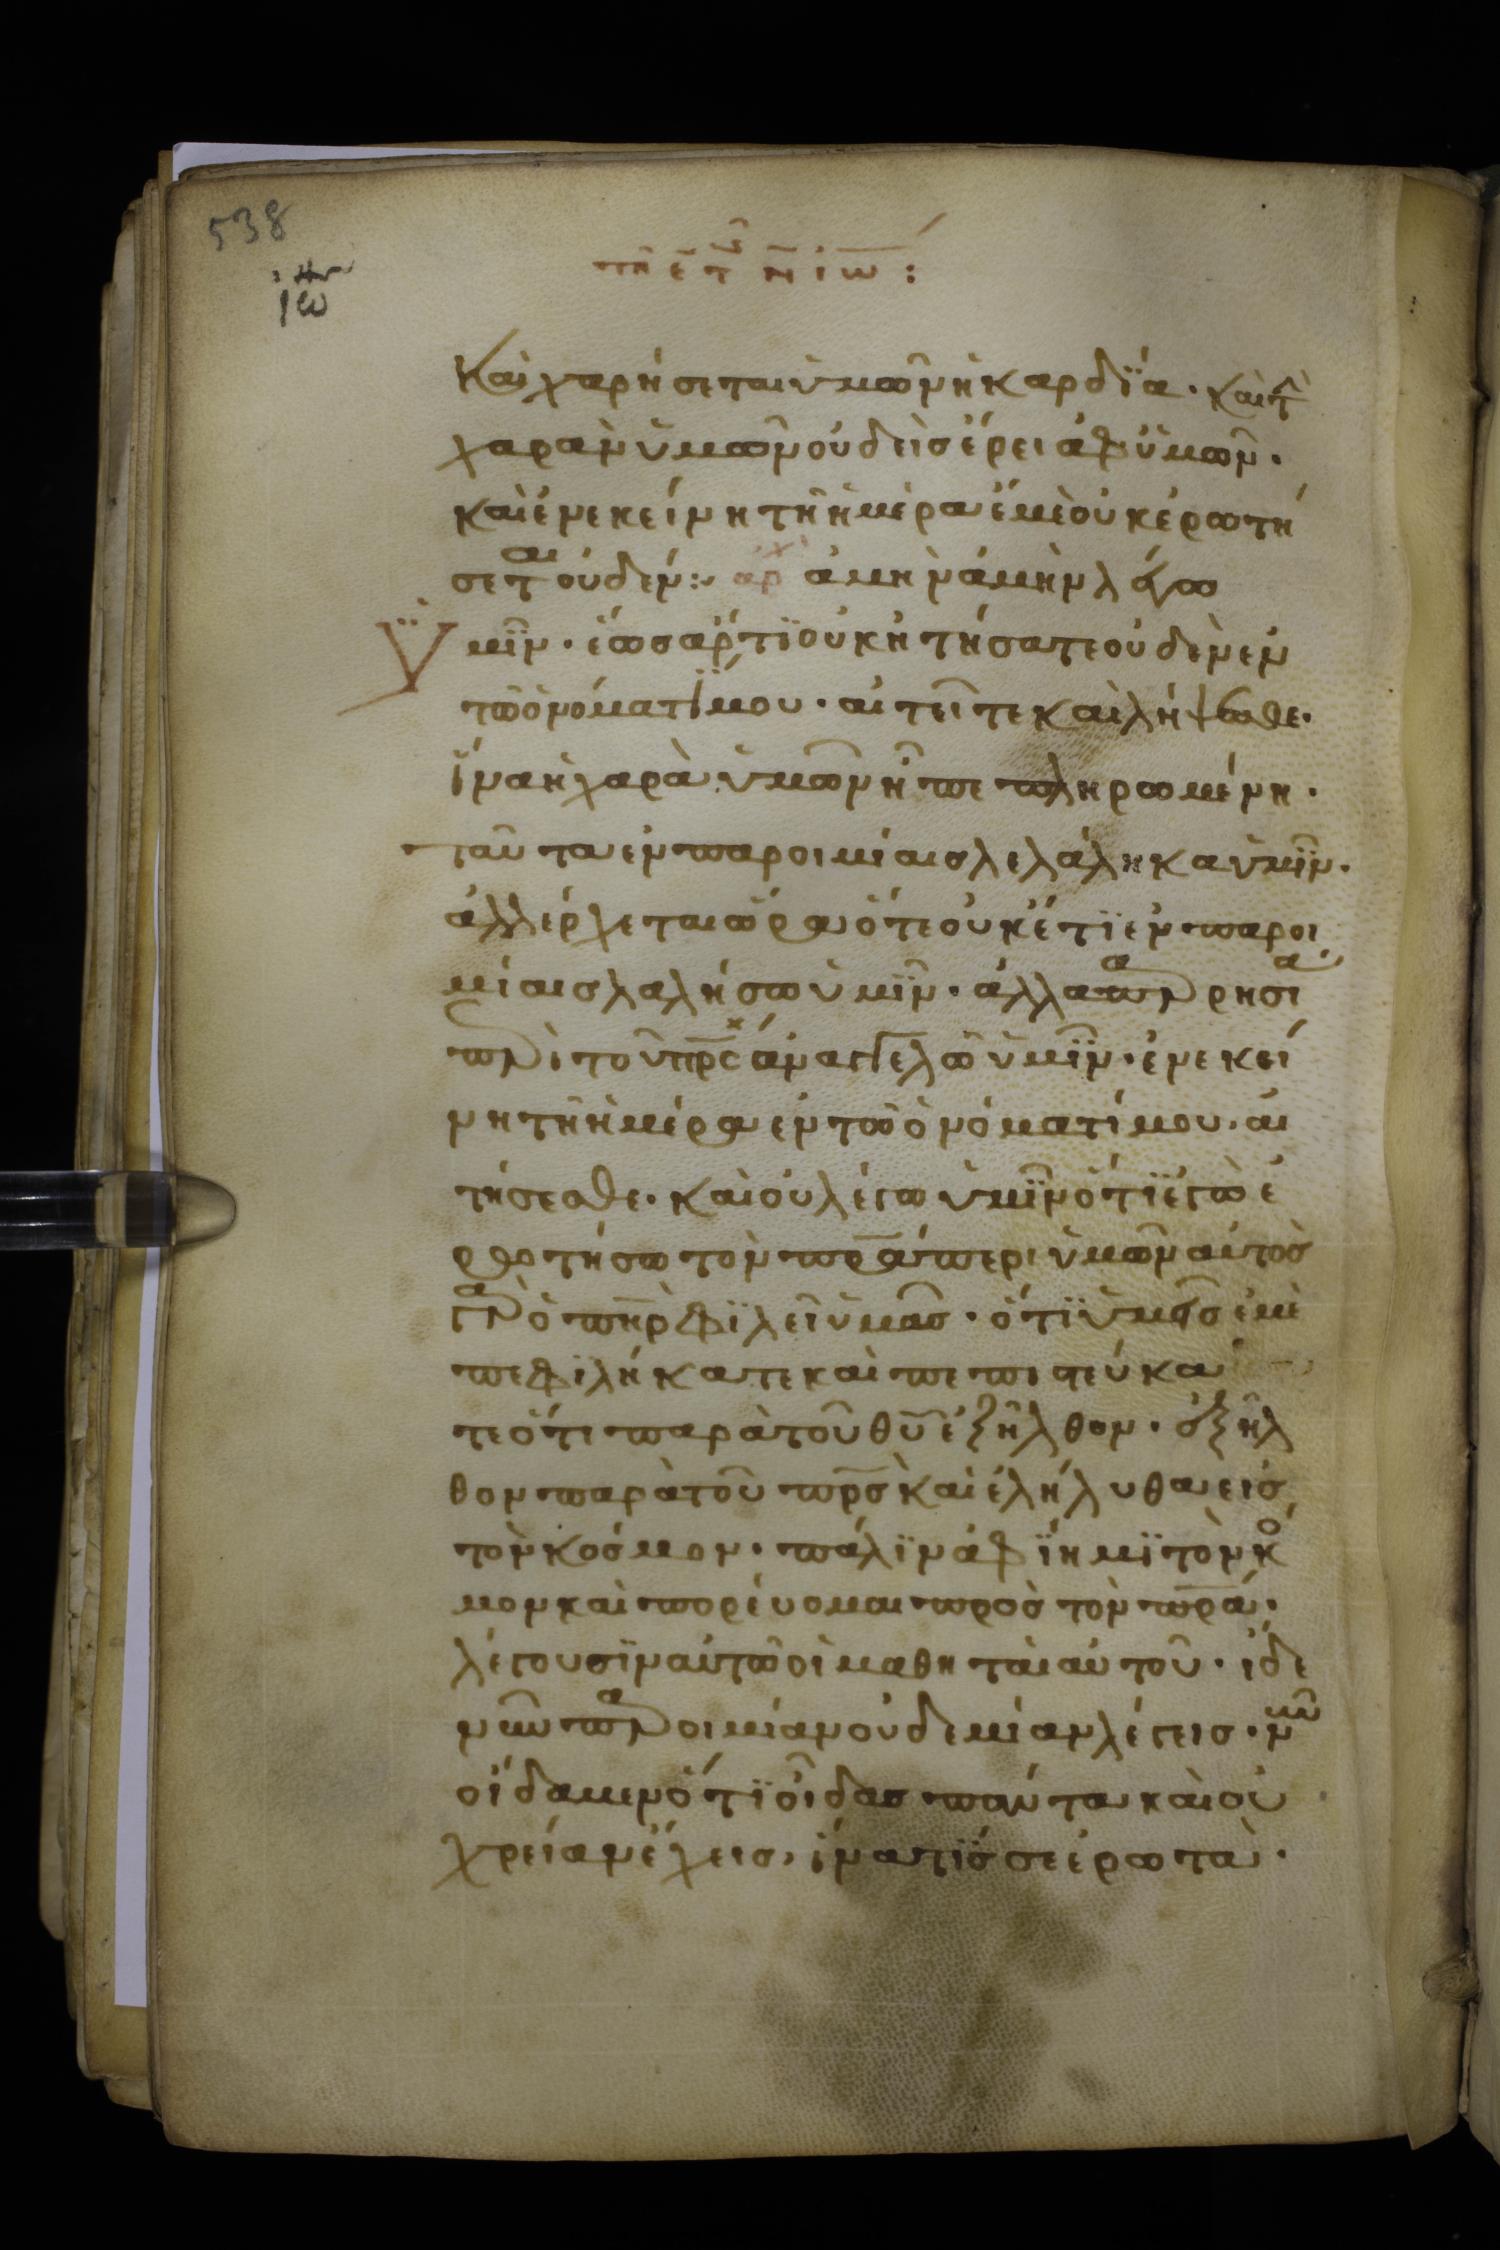 538
ιω
τη ε τ ν ιω :
Καὶ χαρήσεται ὑμῶν ἡ καρδΐα. καὶ τ
χαρὰν ὑμῶν οὐδεὶς ἔρει ἀφ ὑμῶν.
καὶ ἐν ἐκείνη τῆ ἡμέρα ἐμὲ οὐκ ἐρωτή
σεται οὐδέν: αρχ ἀμὴν ἀμὴν λέγω
Ϋμῖν. ἑως ἄρτϊ οὐκ ἠτήσατε οὐδὲν ἐν
τῶ ὀνόματί μου. αἰτεῖτε καὶ λήψεσθε.
ἵνα ἡ χαρὰ ὑμῶν ἦ πεπληρωμένη.
ταῦτα ἐν παροιμίαις λελάληκα ὑμῖν.
ἀλλ ἔρχεται ὥρα ὅτε οὐκέτϊ ἐν παροι
μίαις λαλήσω ὑμῖν. ἀλλα παρρησία
περὶ τοῦ πρς ἀναγγελῶ ὑμῖν. ἐν ἐκεί
νη τῆ ἡμέρα ἐν τῶ ὀνόματί μου. αἰ
τήσεσθε. καὶ οὐ λέγω ὑμῖν ὅτϊ ἐγὼ ἐ
ρωτήσω τὸν πρα περι ὑμῶν αὐτὸς
γὰρ ὁ πηρ φϊλεῖ ὑμᾶς. ὅτϊ ὑμεῖς ἐμὲ
πεφϊλήκατε καὶ πεπιστεύκα
τε ὅτι παρὰ τοῦ θυ ἐξῆλθον. ἐξῆλ
θον παρὰ τοῦ πρς καὶ ἐλήλυθα εἰς
τὸν κόσμον. πάλϊν ἀφΐημϊ τὸν κό
μον καὶ πορεύομαι πρὸς τὸν πρα.
λέγουσϊν αὐτῶ οἱ μαθηταὶ αὐτοῦ. ἴδε
νῦν παροιμίαν οὐδεμίαν λέγεις. νῦν
οἴδαμεν ὅτϊ οἶδας πάντα καὶ οὐ
χρείαν ἔχεις, ἵνα τϊς σε ἐρωτᾶ.